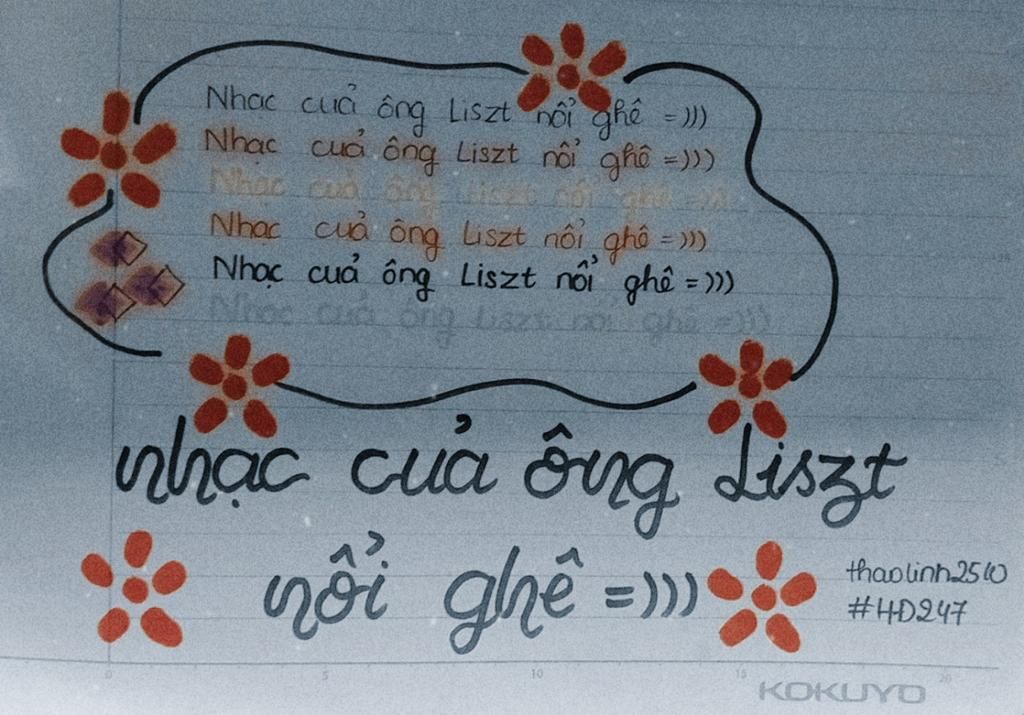 Nhạc cuả ông Liszt nổi ghê =)))
Nhạc cuả ông Liszt nổi ghê =)))
Nhạc cuả ông Liszt nổi ghê =)))
Nhạc cuả ông Liszt nổi ghê =)))
Nhạc cuả ông Liszt nổi ghê =)))
Nhạc cuả ông Liszt nổi ghê =)))
nhạc của ông Liszt
nổi ghê =)))
thaolinh2510
#HD247
0 5 10 15 20
KOKUYO